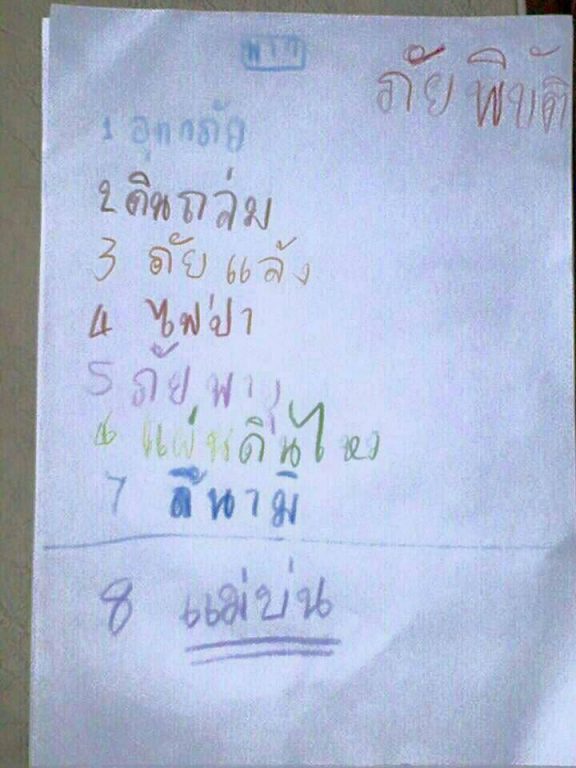 ภัยพิบัติ
1 อุทกภัย
2 ดินถล่ม
3 ภัยแล้ง
4 ไฟป่า
5 ภัยพายุ
6 แผ่นดินไหว
7 สึนามิ
8 แม่บ่น